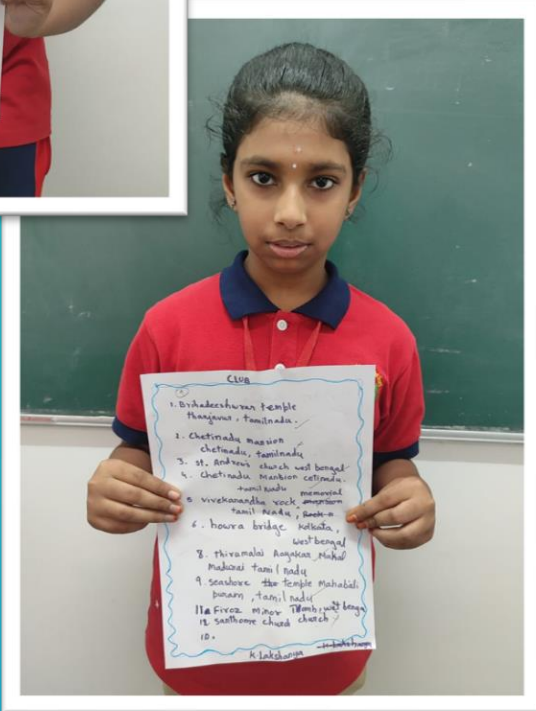 CLUB
1. Brihadeeshwarar temple
thanjavur, tamilnadu.
2. Chetinadu mansion
chetinadu, tamilnadu
3. st. Andrew's church west bengal
4. Chetinadu Mansion cetinadu.
tamil nadu
memorial
5 vivekanandha rock mansion
tamil nadu,
6. howra bridge kolkata,
west bengal
8. thirumalai Mahal
Madurai tamil nadu
9. seashore temple Mahabali
puram, tamil nadu
11 Firoz minor west benga
12 santhome church
10.
K. Lakshanya